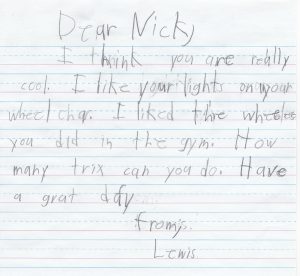 Dear Nicky
I think you are really
cool. I like your lights on your
wheel char. I liked thre wheeles
you did in the gym. How
many trix can you do. Have
a grat day
from's
Lewis